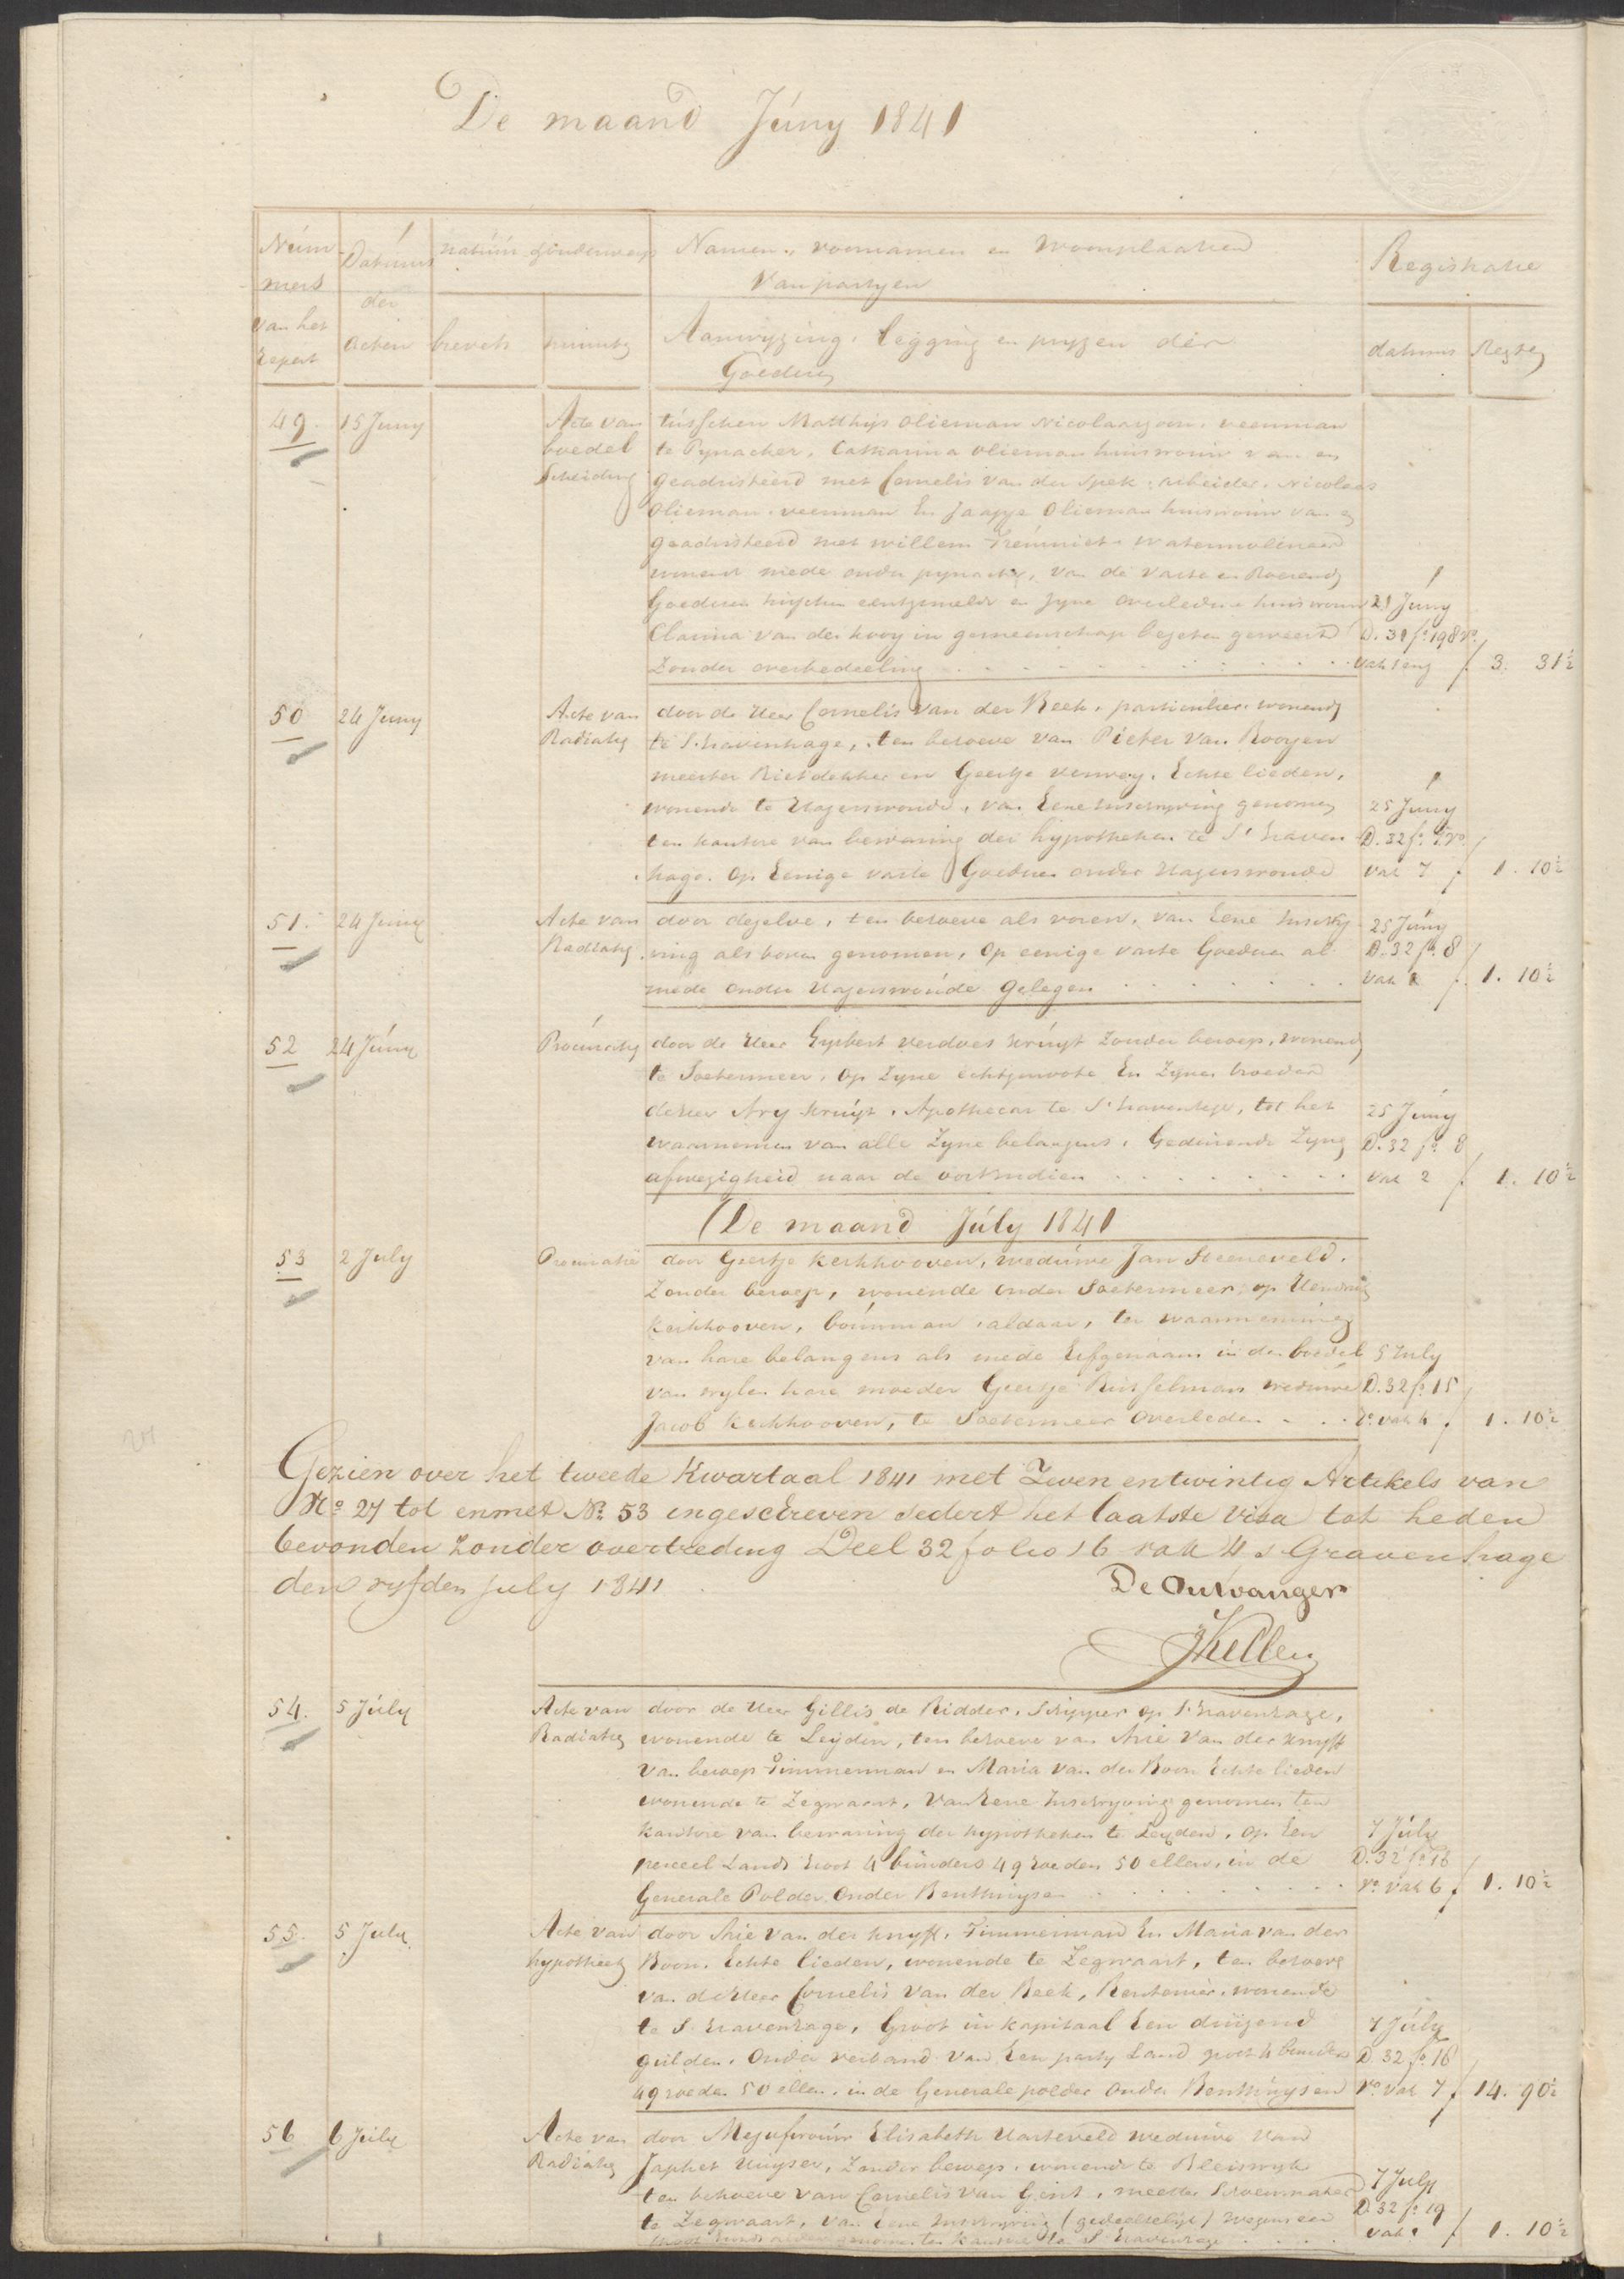 De maand Júny 1841
Núm
mers
van het
Repert
Datums
der
acten
natúúr
brevets
minuts
Namen, voornamen en Woonplaatsen
van partyen
Aanwyzing, legging en pryzen der
Goederen
Registratie
datums
Regten
49. 15 Juny Acte van tússchen Matthijs Olieman Nicolaaszoon, veenman
boedel te Pynacker, Catharina Olieman huisvrouw van en
scheiding geadsisteerd met Cornelis van der Spek, arbeider, Nicolaas
Olieman, veenman En Jaapje Olieman huisvrouw van en
geadsisteerd met willem watermolenaar
wonend mede onder pynacker, van de vaste en Roerend
Goederen tusschen eerstgemelde en zyne overledene huisvrouw 21 Juny
Clasina van der kooy in gemeenschap bezeten geweest D. 31 fo. 198 vo.
Zonder overbedeeling vak 1 env f 3. 31½
50 24 Juny Acte van door de Heer Cornelis van der Beek, particulier, wonend
Radiatie te S. Gravenhage, ten behoeve van Pieter van Rooyen
meester Rietdekker en Geertje Verwey, Echte lieden,
wonende te Hazerswoude, van Eene Inschryving genomen 25 Júny
ten kantore van bewaring der hypotheken te S' Graven D. 32 fo. 7 vo.
hage. Op Eenige vaste Goederen onder Hazerswoude vak 7 f 1. 10½
51. 24 Juny Acte van door dezelve, ten behoeve als voren, van Eene Inschry 25 Júny
Radiatie ving als boven genomen, Op eenige vaste Goederen al D. 32 fo. 8
mede onder Hazerswoúde gelegen vak 1 f 1. 10½
52 24 Júny Procúratie door de Heer Gysbert Verdoes Krúyt Zonder beroep, wonend
te Soetermeer, Op Zyne Echtgenoote En Zynen broeder
de Heer Ary Krúyt, Apothecar te S' Gravenhage, tot het 25 Júny
waarnemen van alle Zyne belangens, Gedúrende Zyne D. 32 fo. 8
afwezigheid naar de oostindien vak 2 f 1. 10½
De maand Júly 1841
53 2 July Procuratie door Geertje Kerkhooven, wedúwe Jan Steeneveld,
Zonder beroep, wonende onder Soetermeer, op Hendrik
Kerkhooven, boúwman, aldaar, ter waarneming
van hare belangens als mede Erfgenaam in den boedel 5 July
van wylen hare moeder Geertje wedúwe D. 32 fo. 15
Jacob Kerkhooven, te Soetermeer Overleden vo. vak 4 f 1. 10½
Gezien over het tweede Kwartaal 1841 met Zeven entwintig Artikels van
No. 27 tot enmet No. 53 ingeschreven sedert het laatste visa tot heden
bevonden zonder overtreding Deel 32 folio 16 vak 4 s Gravenhage
den vyfden july 1841
De Ontvanger
54. 5 Júly Acte van door de Heer Gillis de Ridder, Schipper op S. Gravenhage,
Radiatie wonende te Leyden, ten behoeve van Arie van der Knyff
van beroep Timmerman en Maria van der Boon Echte lieden
wonende te Zegwaart, van Eene Inschryving genomen ten
kantore van bewaring der hypotheken te Leyden, Op Een 7 Júly
perceel Lands Groot 4 búnders 49 roeden 50 ellen, in de D. 32 fo. 16
Generale Polder onder Benthuysen vo. vak 6 f 1. 10½
55. 5 July Acte van door Arie van der Knyff, Timmerman En Maria van der
hypotheek Boon, Echte lieden, wonende te Zegwaart, ten behoeve
van de Heer Cornelis van der Beek, Rentenier, wonende
te S. Gravenhage, Groot in kapitaal Een dúizend 7 Júly
gúlden, Onder verband van Een party Land groot 4 bunders D. 32 fo. 16
49 roeden 50 ellen, in de Generale polder onder Benthúysen vo. vak 7 f 14. 90½
56 6 Júly Acte van door Mejufvroúw Elisabeth Harteveld wedúwe van
Radiatie Japhet Huyser, Zonder beroep, wonende te Bleiswyk 7 July
ten behoeve van Cornelis van Gent, meester Schoenmaker D. 32 fo. 19
te Zegwaart, van Eene Inschryving (gedeeltelijk) wegens een vak 1 f 1. 10½
genomen ten Kantore te S. Gravenhage